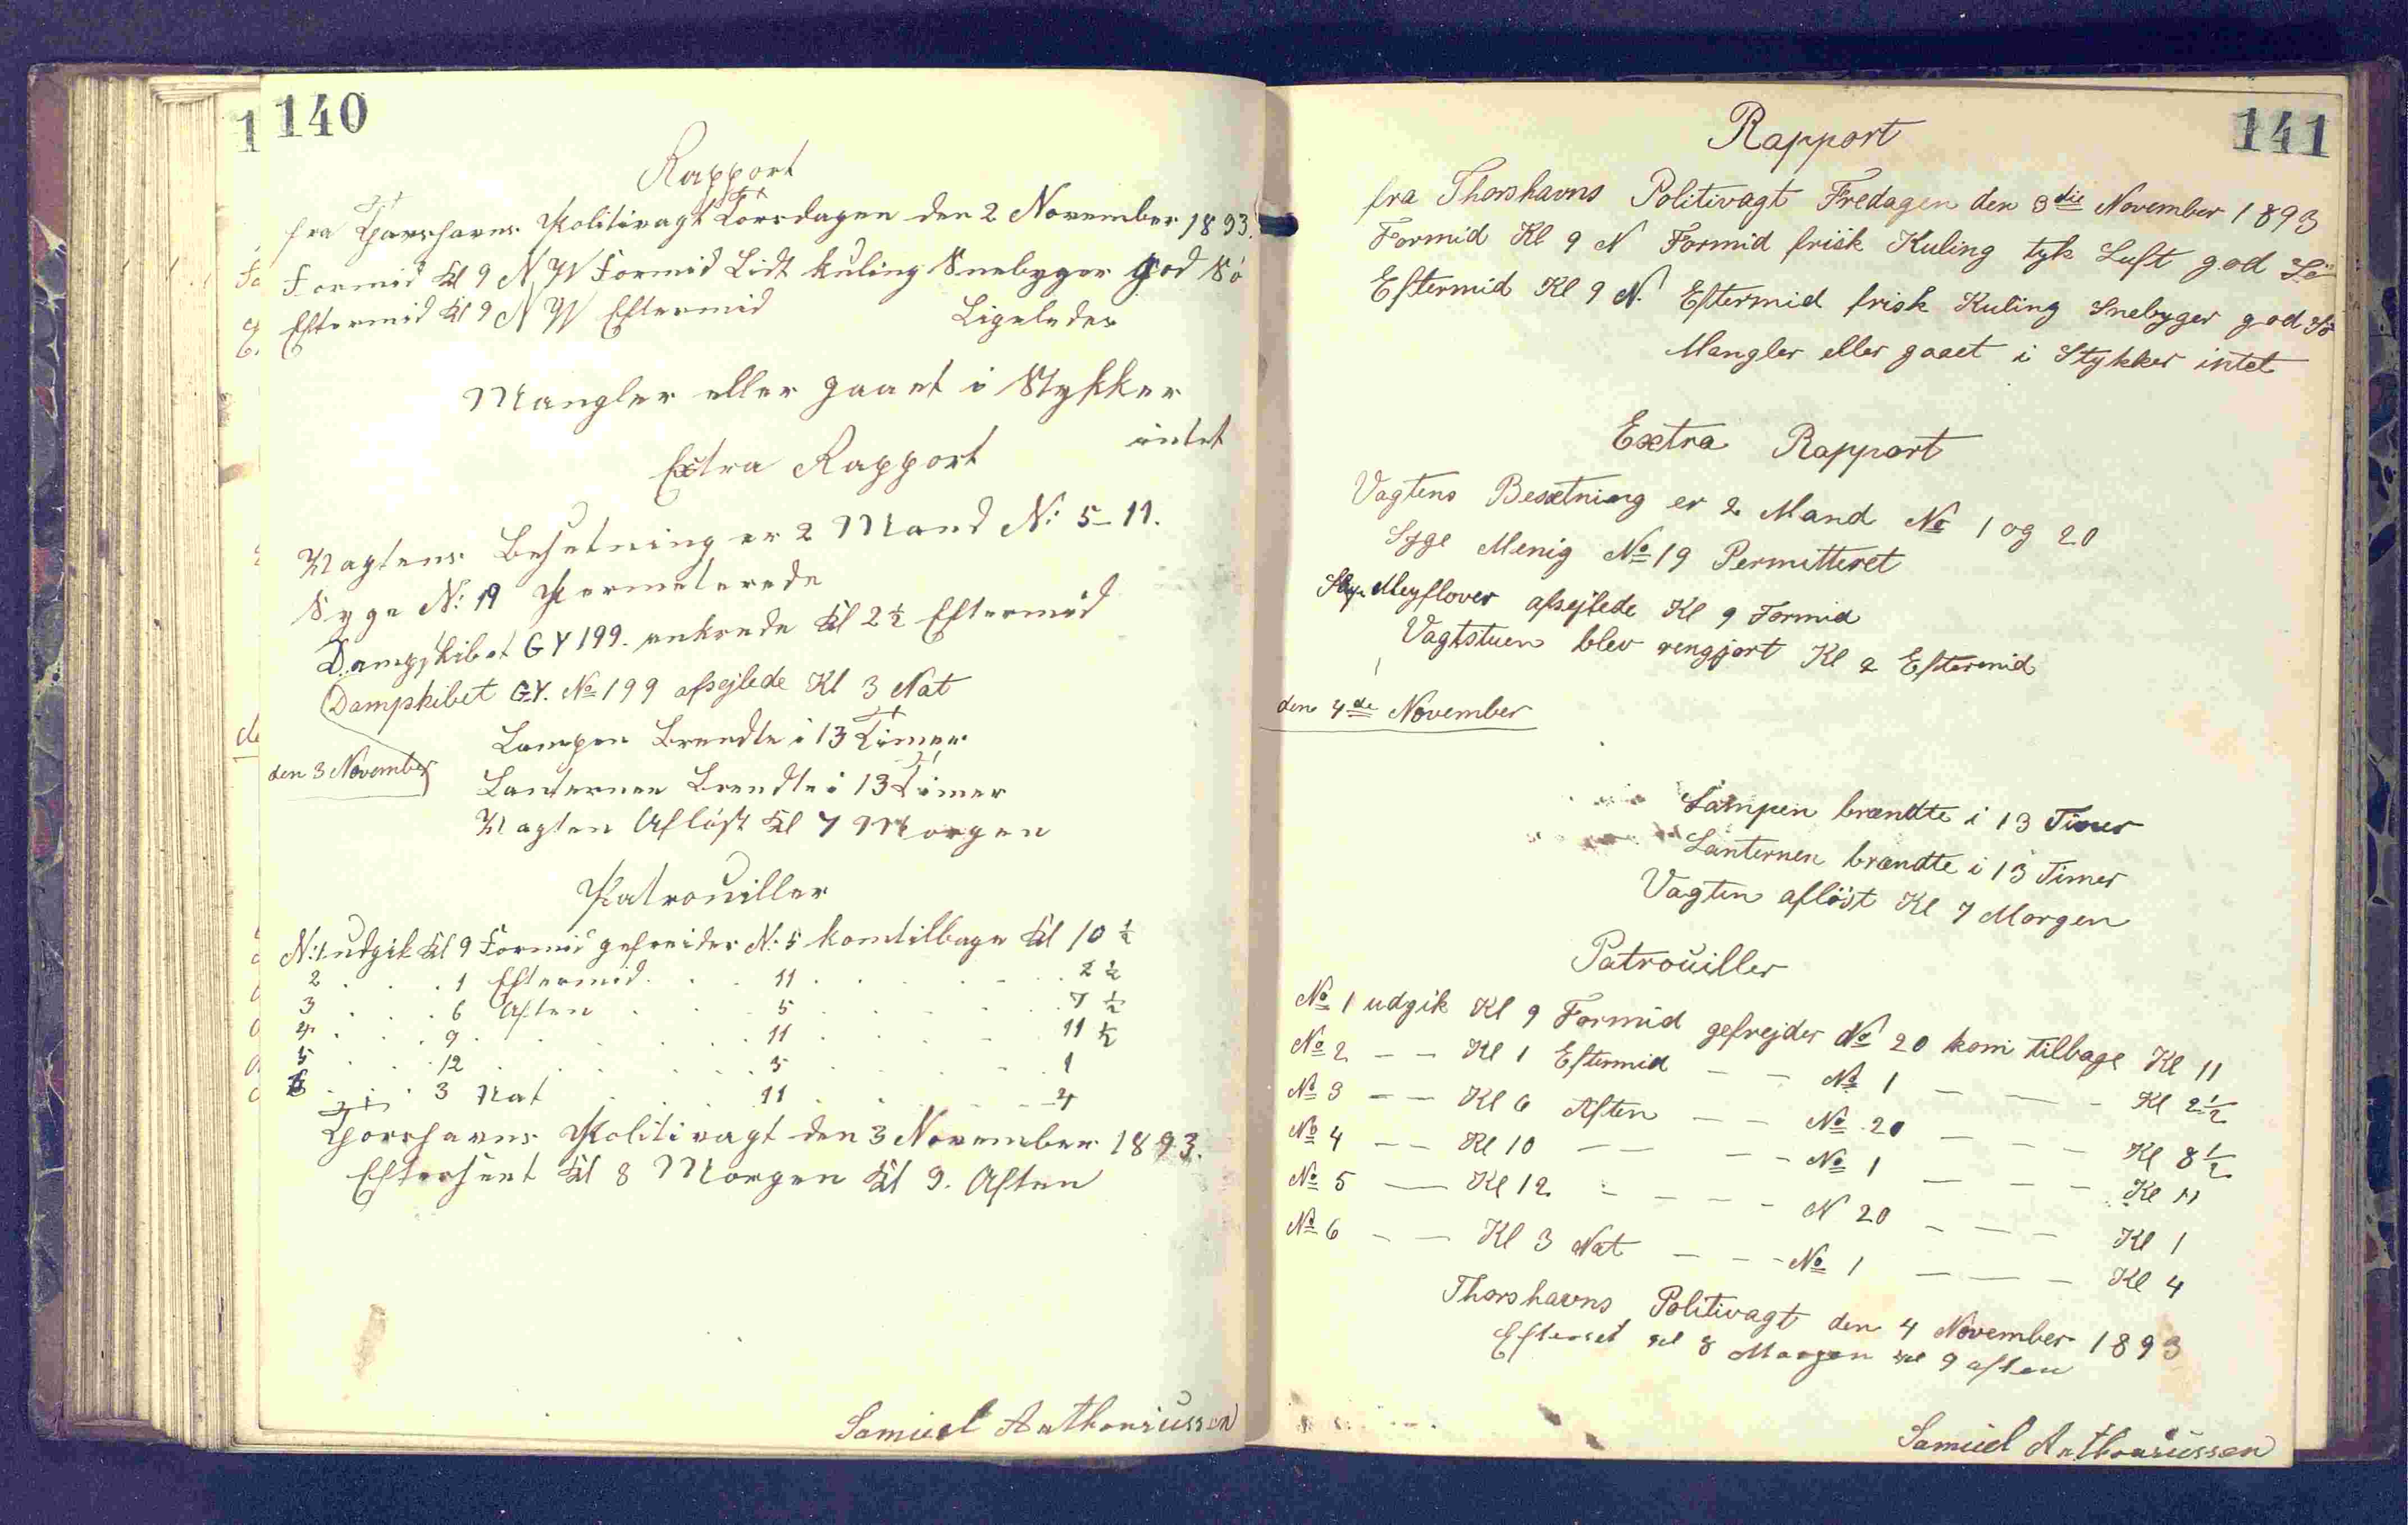 140
Rapport
fra Thorshavns Politivagt Torsdagen den 2 November 1893.
Formid Kl 9 N W Formid Lidt kuling Snebyger god Sö
Eftermid Kl 9 N W Eftermid Ligeledes
Mangler eller gaaet i Stykker
intet
Extra Rapport
Vagtens Besetning er 2 Mand N: 5-11.
Syge N: 19 Permeterede
Dampskibet GY 199. ankrede Kl 2½ Eftermid
Dampskibet GY. No 199 afsejlede Kl 3 Nat
Lampen Brendte i 13 Timer
den 3 November
Lanternen Brendte i 13 Timer
Vagten Aflöst Kl 7 Morgen
Patrouiller
N: 1 udgik Kl 9 Formid gefreider N: 5 kom tilbage Kl 10 ½
2 . . . 1 Eftermid . . 11 . . . . . 2 ½
3 . . . 6 Aften . . 5 . . . . . 7 ½
4 . . . 9 . . . . 11 . . . . . 11 ½
5 . . . 12 . . . . 5 . . . . . 1
6 . . . 3 Nat . . . 11 . . . . . 4
Thorshavns Politivagt den 3 November 1893.
Efterseet Kl 8 Morgen Kl 9. Aften
Samuel Anthoniussen
141
Rapport
fra Thorshavns Politivagt Fredagen den 3die November 1893
Formid Kl 9 N Formid frisk Kuling tyk Luft god Sö
Eftermid Kl 9 N. Eftermid frisk Kuling Snebyger god Sö
Mangler eller gaaet i Stykker intet
Extra Rapport
Vagtens Besætning er 2 Mand No 1 og 20
Syge Menig No 19 Permitteret
Meyflover afsejlede Kl 9 Formid
Vagtstuen blev rengjort Kl 2 Eftermid
den 4de November
Lampen brændte i 13 Timer
Lanternen brændte i 13 Timer
Vagten aflöst Kl 7 Morgen
Patrouiller
No 1 udgik Kl 9 Formid gefrejder No 20 kom tilbage Kl 11
No 2 — — Kl 1 Eftermid — — No 1 — — — Kl 2½
No 3 — — Kl 6 Aften — — No 20 — — — Kl 8½
No 4 — — Kl 10 — — — — No 1 — — — Kl 11
No 5 — Kl 12 — — — — N 20 — — — Kl 1
No 6 — — Kl 3 Nat — — — No 1 — — — Kl 4
Thorshavns Politivagt den 4 November 1893
Efterset Kl 8 Morgen Kl 9 aften
Samuel Anthoniussen